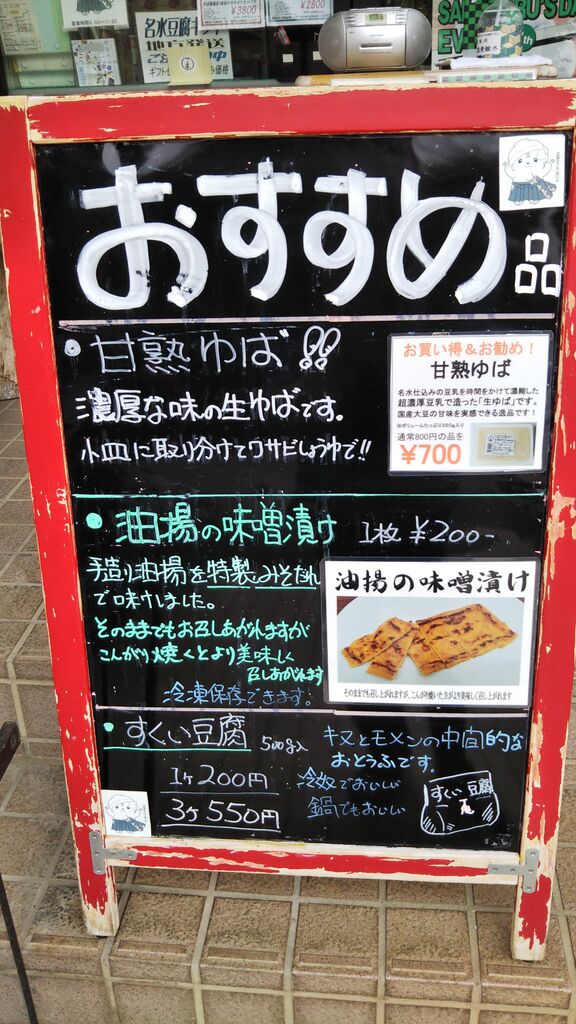 ¥3900
¥2800
名水豆腐ギフト
地方発送
おすすめ品
・甘熟ゆば!!
濃厚な味の生ゆばです。
小皿に取り分けてワサビしょうゆで!!
お買い得&お勧め!
甘熟ゆば
名水仕込みの豆乳を時間をかけて濃縮した
超濃厚豆乳で造った「生ゆば」です。
国産大豆の甘味を実感できる逸品です!
※ボリュームたっぷり350g入り
通常800円の品を
¥700
・油揚の味噌漬け 1枚 ¥200-
手造り油揚を特製みそたれ
で味付しました。
そのままでもお召しあがれますが
こんがり焼くとより美味しく
召しあがれます
冷凍保存できます。
油揚の味噌漬け
そのままでも召し上がれますが、こんがり焼いた方がより美味しく召し上がれます
・すくい豆腐 500g入
1ヶ 200円
3ヶ 550円
キヌとモメンの中間的な
おとうふです。
冷奴でおいしい
鍋でもおいしい
すくい豆腐